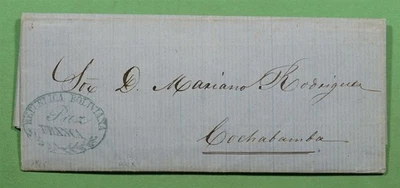 Sor D. Mariano Rodriguez
Cochabamba
REPUBLICA BOLIVIANA
Paz
FRANCA